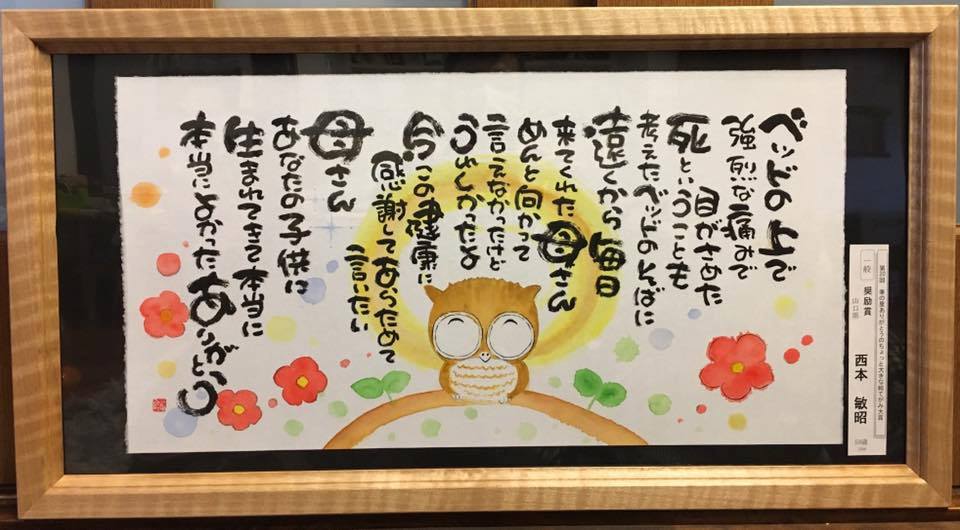 ベッドの上で
強烈な痛みで
目がさめた
死ということも
考えたベッドのそばに
遠くから毎日
来てくれた母さん
めんと向かって
言えなかったけど
うれしかったよ
今この健康に
感謝してあらためて
言いたい
母さん
あなたの子供に
生まれてきて本当に
本当によかったありがとう
第20回 筆の里ありがとうのちょっと大きな絵てがみ大賞
一般 奨励賞
山口県
西本 敏昭